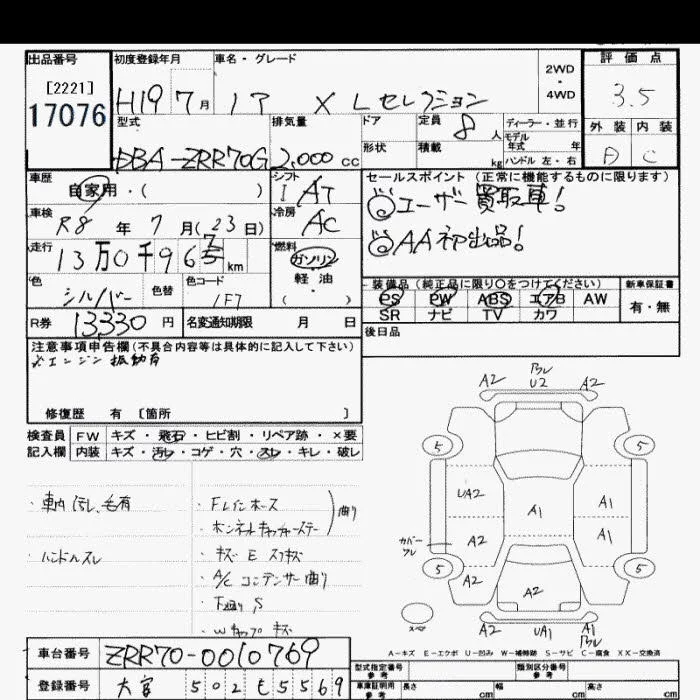 出品番号
[2221]
17076
初度登録年月
H19 7月
車名・グレード
ノア X Lセレクション
2WD
・
4WD
評価点
3.5
外装 内装
D C
型式
DBA-ZRR70G
排気量
2,000cc
ドア
形状
定員
8人
積載
kg
ディーラー・並行
モデル
年式 年
ハンドル左・右
車歴
自家用・( )
シフト
I AT
セールスポイント (正常に機能するものに限ります)
◎ユーザー買取車!
◎AA初出品!
車検
R8年 7月(23日)
冷房
AC
走行
13万0千96 km
燃料
ガソリン
軽・油
( )
色
シルバー
色替
色コード
1F7
装備品(純正品に限り〇をつけてください)
PS PW ABS エアB AW
SR ナビ TV カワ
新車保証書
有・無
R券 13330円
名変通知期限 月 日
後日品
注意事項申告欄(不具合内容等は具体的に記入して下さい)
※エンジン振動有
修復歴 有 〔箇所 〕
検査員
記入欄
FW キズ・飛石・ヒビ割・リペア跡・×要
内装 キズ・汚レ・コゲ・穴・スレ・キレ・破レ
・車内汚レ、毛有
・ハンドルスレ
・Fレインホース
・ボンネットキャッチステー
曲り
・キズ E スリキズ
・A/Cコンデンサー曲り
・下廻りS
・Wキャップキズ
A2 U2 A2
5 5
UA2 A1 A1
カバー
ワレ
A2 A1
5 5
A2 A2
スペア
A2 UA1 A1
A-キズ E-エクボ U-凹み W-補修跡 S-サビ C-腐食 XX-交換済
車台番号 ZRR70-0010769
登録番号 大宮 502 も 5569
型式指定番号
参考
類別区分番号
参考
車庫証明用
参考
長さ cm 幅 cm 高さ cm